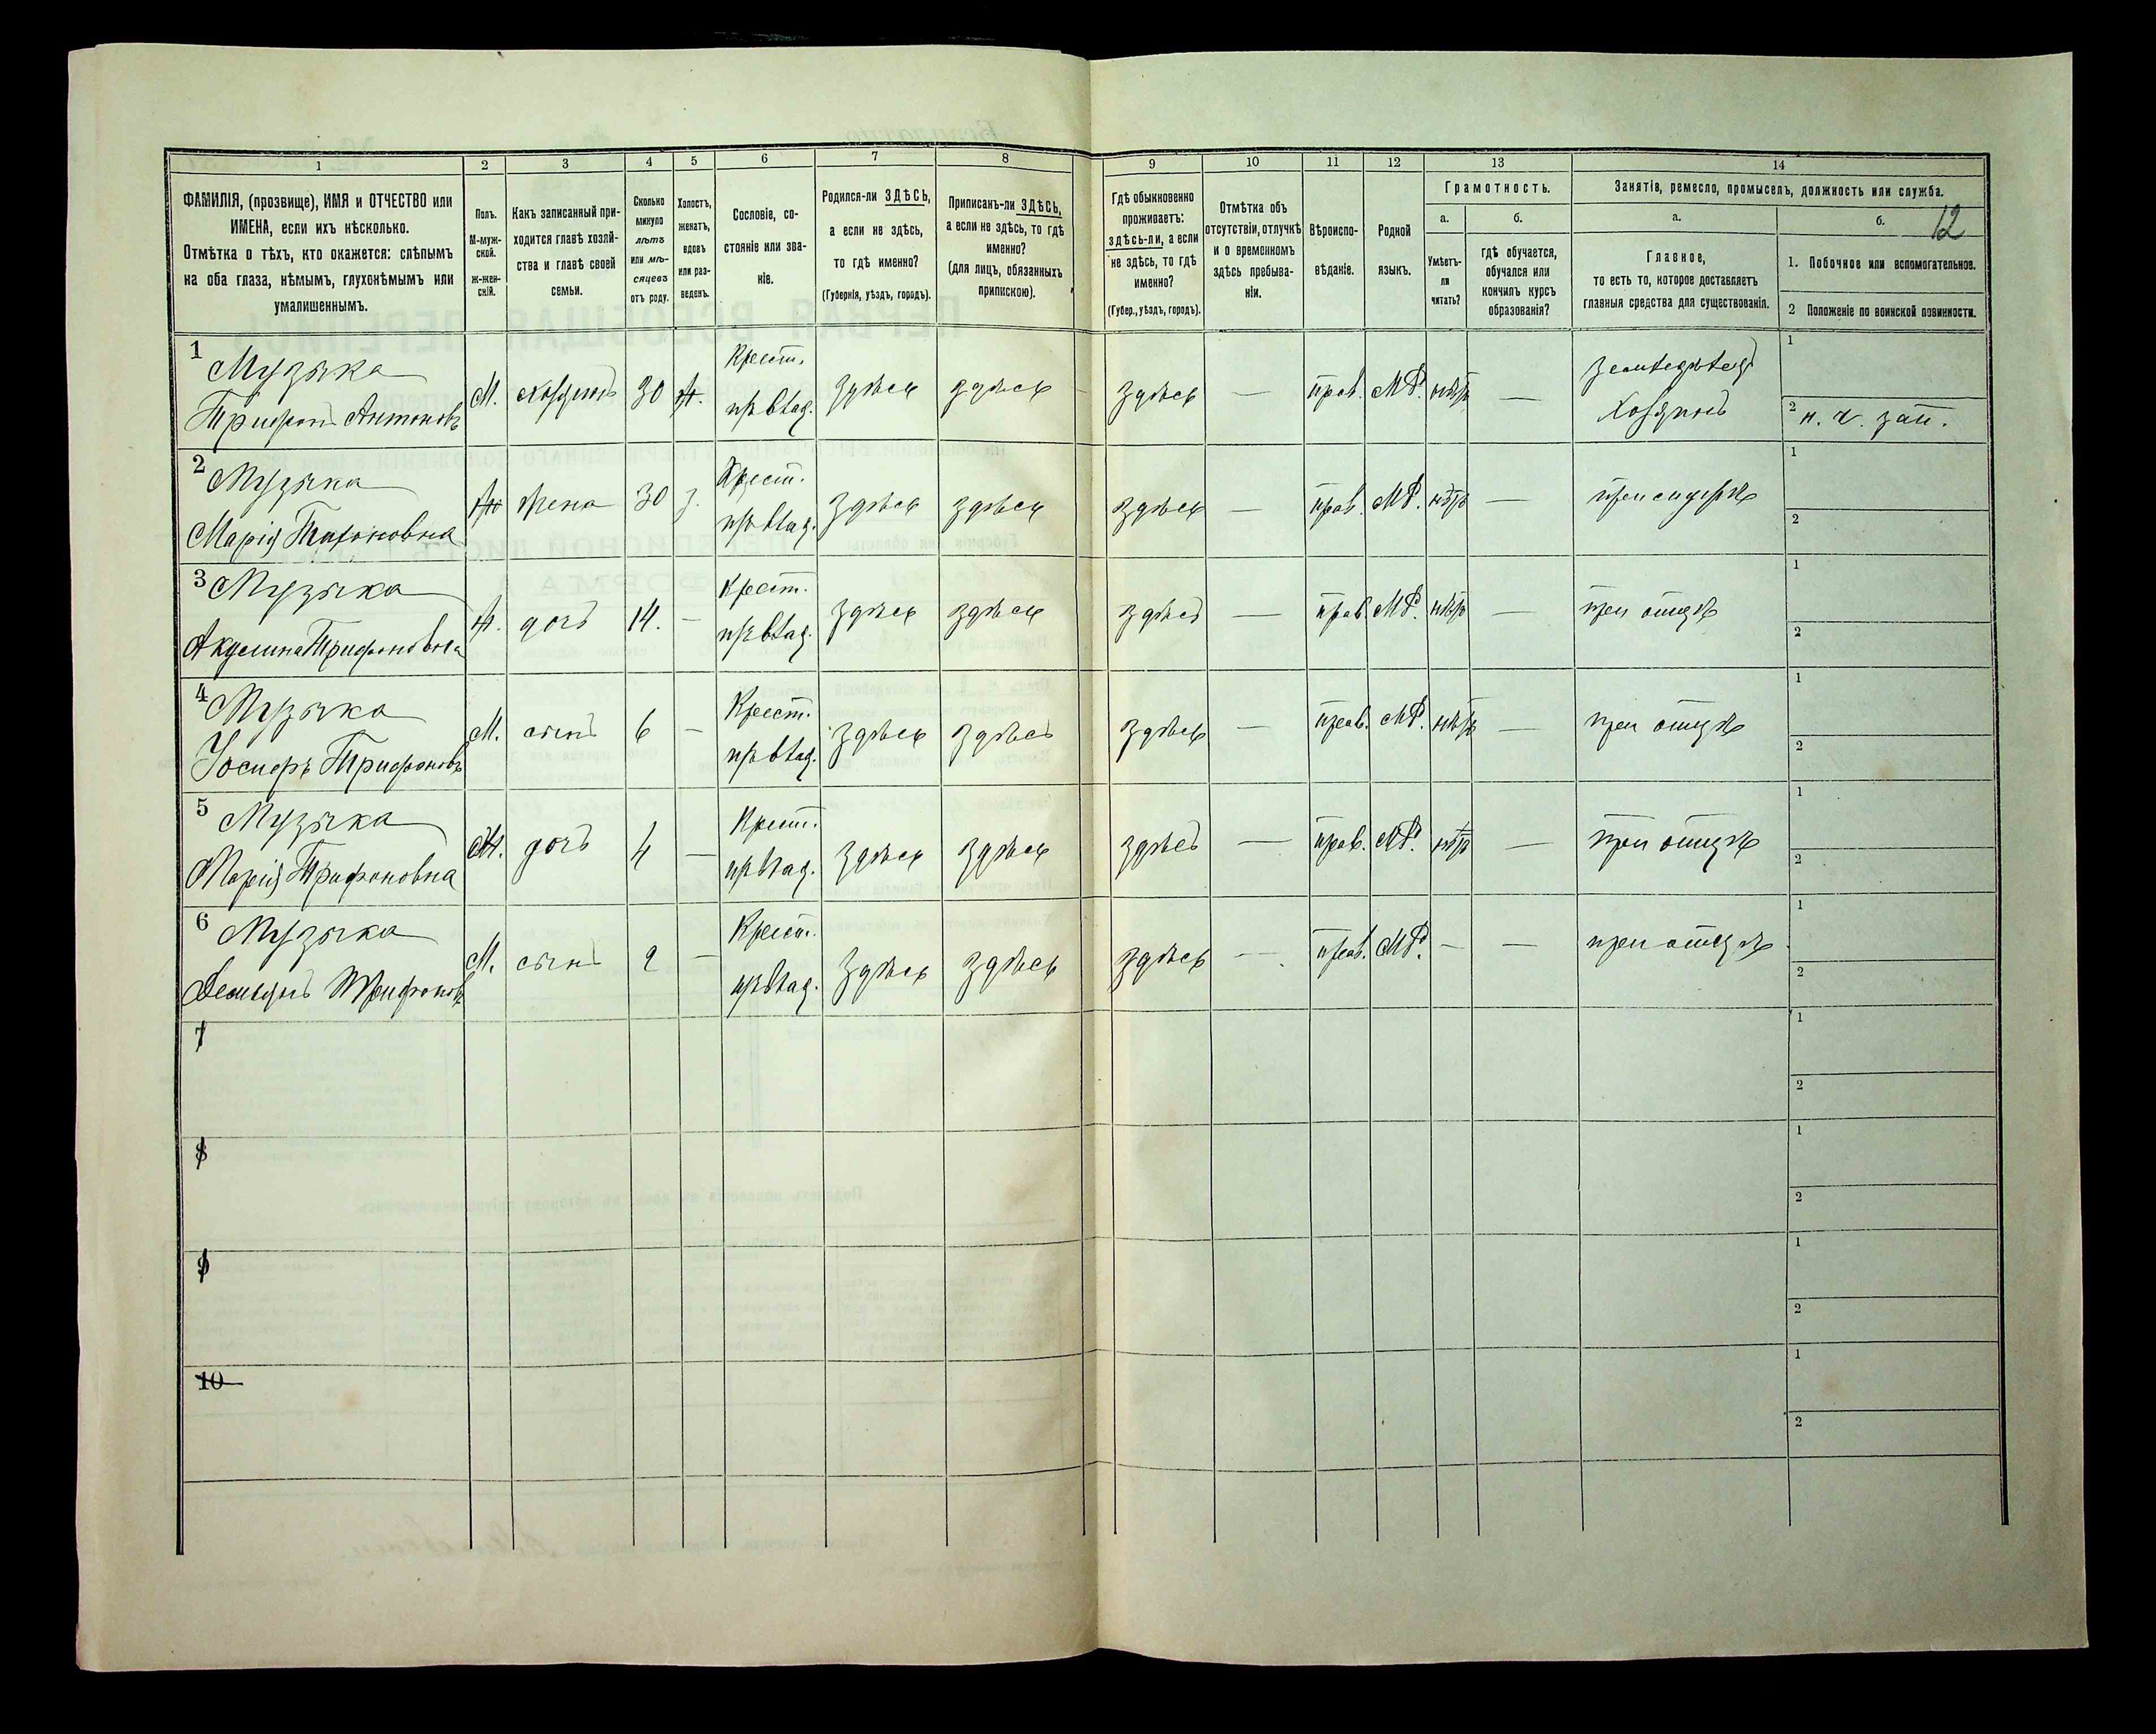 1 2 3 4 5 6 7 8 9 10 11 12 13 14
ФАМИЛІЯ, (прозвище), ИМЯ и ОТЧЕСТВО или
ИМЕНА, если ихъ нѣсколько.
Отмѣтка о тѣхъ, кто окажется: слѣпымъ
на оба глаза, нѣмымъ, глухонѣмымъ или
умалишеннымъ.
Полъ.
М-муж-
ской.
ж-жен-
скій.
Какъ записанный при-
ходится главѣ хозяй-
ства и главѣ своей
семьи.
Сколько
минуло
лѣтъ
или мѣ-
сяцевъ
отъ роду.
Холостъ,
женатъ,
вдовъ
или раз-
веденъ.
Сословіе, со-
стояніе или зва-
ніе.
Родился-ли ЗДѢСЬ,
а если не здѣсь,
то гдѣ именно?
(Губернія, уѣздъ, городъ).
Приписанъ-ли ЗДѢСЬ,
а если не здѣсь, то гдѣ
именно?
(для лицъ, обязанныхъ
припискою).
Гдѣ обыкновенно
проживаетъ:
здѣсь-ли, а если
не здѣсь, то гдѣ
именно?
(Губер., уѣздъ, городъ).
Отмѣтка объ
отсутствіи, отлучкѣ
и о временномъ
здѣсь пребыва-
ніи.
Вѣроиспо-
вѣданіе.
Родной
языкъ.
Грамотность.
а.
Умѣетъ-
ли
читать?
б.
гдѣ обучается,
обучался или
кончилъ курсъ
образованія?
Занятіе, ремесло, промыселъ, должность или служба.
а.
Главное,
то есть то, которое доставляетъ
главныя средства для существованія.
б.
12
1. Побочное или вспомогательное.
2 Положеніе по воинской повинности.
1 Музыка Крест. земледѣлец 1
Трифонъ Антоновъ М. хозяинъ 30 ж. пр. влад. здѣсь здѣсь — здѣсь — прав. МР. нѣтъ — хозяинъ 2 н. ч. зап.
2 Музыка Крест. 1
Марія жена 30 з. пр. влад. здѣсь здѣсь здѣсь — прав. МР. нѣтъ — 2
3 Музыка Крест. 1
Акулина Трифоновна ж. дочь 14. — пр. влад. здѣсь здѣсь здѣсь — прав. МР. нѣтъ — при отцѣ 2
4 Музыка Крест. 1
Іосифъ Трифоновъ М. сынъ 6 — пр. влад. здѣсь здѣсь здѣсь — прав. МР. нѣтъ — при отцѣ 2
5 Музыка Крест. 1
Марія Трифоновна ж. дочь 4 — пр. влад. здѣсь здѣсь здѣсь — прав. МР. нѣтъ — при отцѣ 2
6 Музыка Крест. 1
Демьянъ Трифоновъ М. сынъ 2 — пр. влад. здѣсь здѣсь здѣсь — прав. МР. — — при отцѣ 2
7 1
2
8 1
2
9 1
2
10 1
2